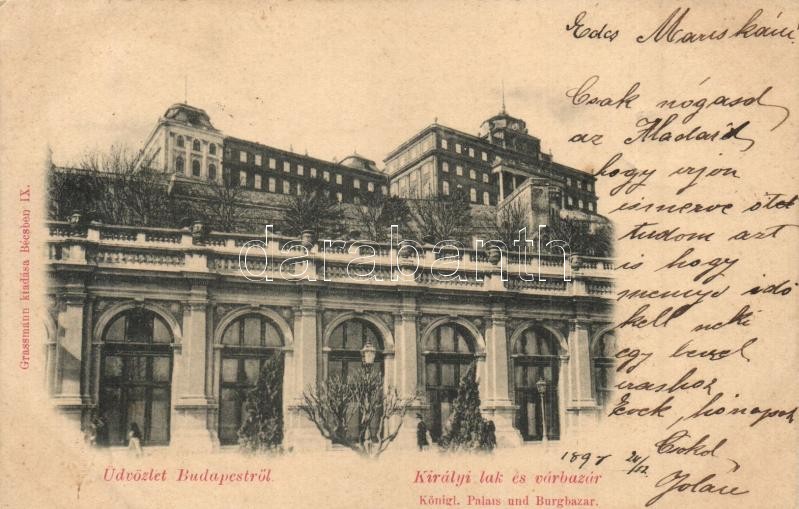 Edes Mariskám
Csak nógasd
az Aladárt
hogy irjon
ismerve őtet
tudom azt
is hogy
mennyi idő
kell neki
egy levél
iráshoz
Evek, hónapok
Csókol
Jolán
1897 24/12
darabanth
Grassmann kiadása Bécsben IX.
Üdvözlet Budapestről.
Királyi lak és várbazár
Königl. Palais und Burgbazar.